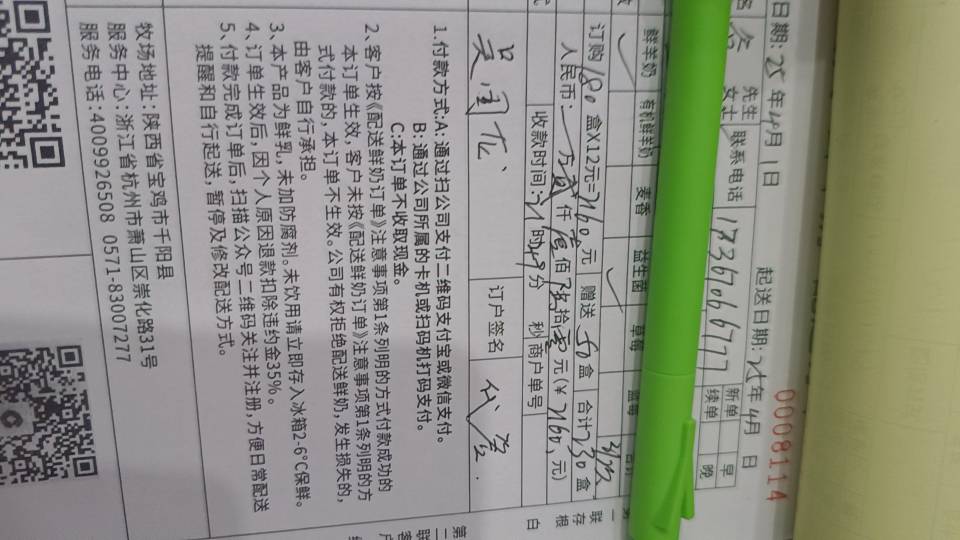 0008114
日期: 25 年 4月 1日 起送日期: 25 年 4月 日
名 先生 女士 联系电话 17367066777 新单 续单 早 晚
鲜羊奶 有机鲜羊奶 麦香 益生菌 草莓 蓝莓 合计
订购 180 盒X12元= 2160 元 赠送 50 盒 合计 230 盒
人民币: 万 贰 仟 壹 佰 陆 拾 零 元(¥ 2160. 元)
收款时间: 21 时 49 分 秒 商户单号
订户签名 代签
1.付款方式:A:通过扫公司支付二维码支付宝或微信支付。
B:通过公司所属的卡机或扫码机打码支付。
C:本订单不收取现金。
2、客户按《配送鲜奶订单》注意事项第1条列明的方式付款成功的
本订单生效，客户未按《配送鲜奶订单》注意事项第1条列明的方
式付款的，本订单不生效。公司有权拒绝配送鲜奶，发生损失的，
由客户自行承担。
3、本产品为鲜乳，未加防腐剂。未饮用请立即存入冰箱2-6°C保鲜。
4、订单生效后，因个人原因退款扣除违约金35%。
5、付款完成订单后，扫描公众号二维码关注并注册，方便日常配送
提醒和自行起送，暂停及修改配送方式。
牧场地址:陕西省宝鸡市千阳县
服务中心:浙江省杭州市萧山区崇化路31号
服务电话:4009926508 0571-83007277
第一联 存根 白
第二联 客户